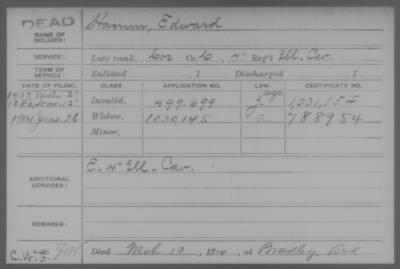 DEAD
NAME OF SOLDIER:
Hamm, Edward
SERVICE:
Late rank, Cor Co. C, 4" Reg't Ill. Cav.
TERM OF SERVICE:
Enlisted , 1 Discharged , 1
DATE OF FILING. CLASS. APPLICATION NO. LAW. CERTIFICATE NO.
Invalid, 499,699 age 1,031,154
1914 June 26 Widow, 1030,145 a 788954
Minor,
ADDITIONAL SERVICES:
E. 4" Ill. Cav.
REMARKS:
Died Mch 13, 1914, at Bradley, Ark